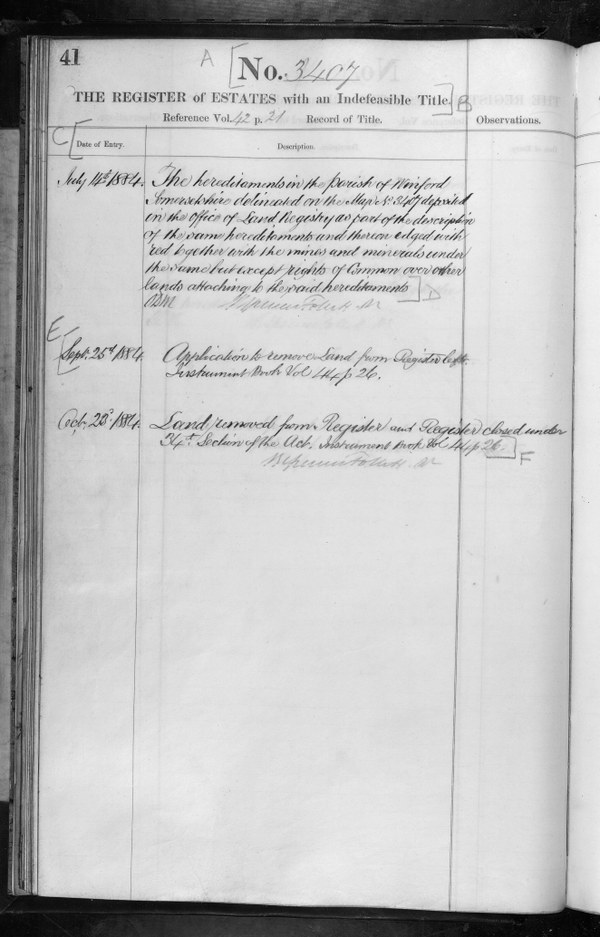 41
A [ No. 3407
THE REGISTER of ESTATES with an Indefeasible Title. ] B
Reference Vol. 42 p. 21 Record of Title. Observations.
C [ Date of Entry. Description.
July 14th 1884. The hereditaments in the parish of Winford
Somersetshire delineated on the Map No 3407 deposited
in the office of Land Registry as part of the description
of the same hereditaments and thereon edged with
red together with the mines and minerals under
the same but except rights of Common over other
lands attaching to the said hereditaments ] D
E
[ Sept. 25th 1884. Application to remove Land from Register
Instrument Book Vol 44 p 26.
Oct. 23d 1884. Land removed from Register and Register closed under
34th Section of the Act. Instrument Book Vol 44 p 26. ] F